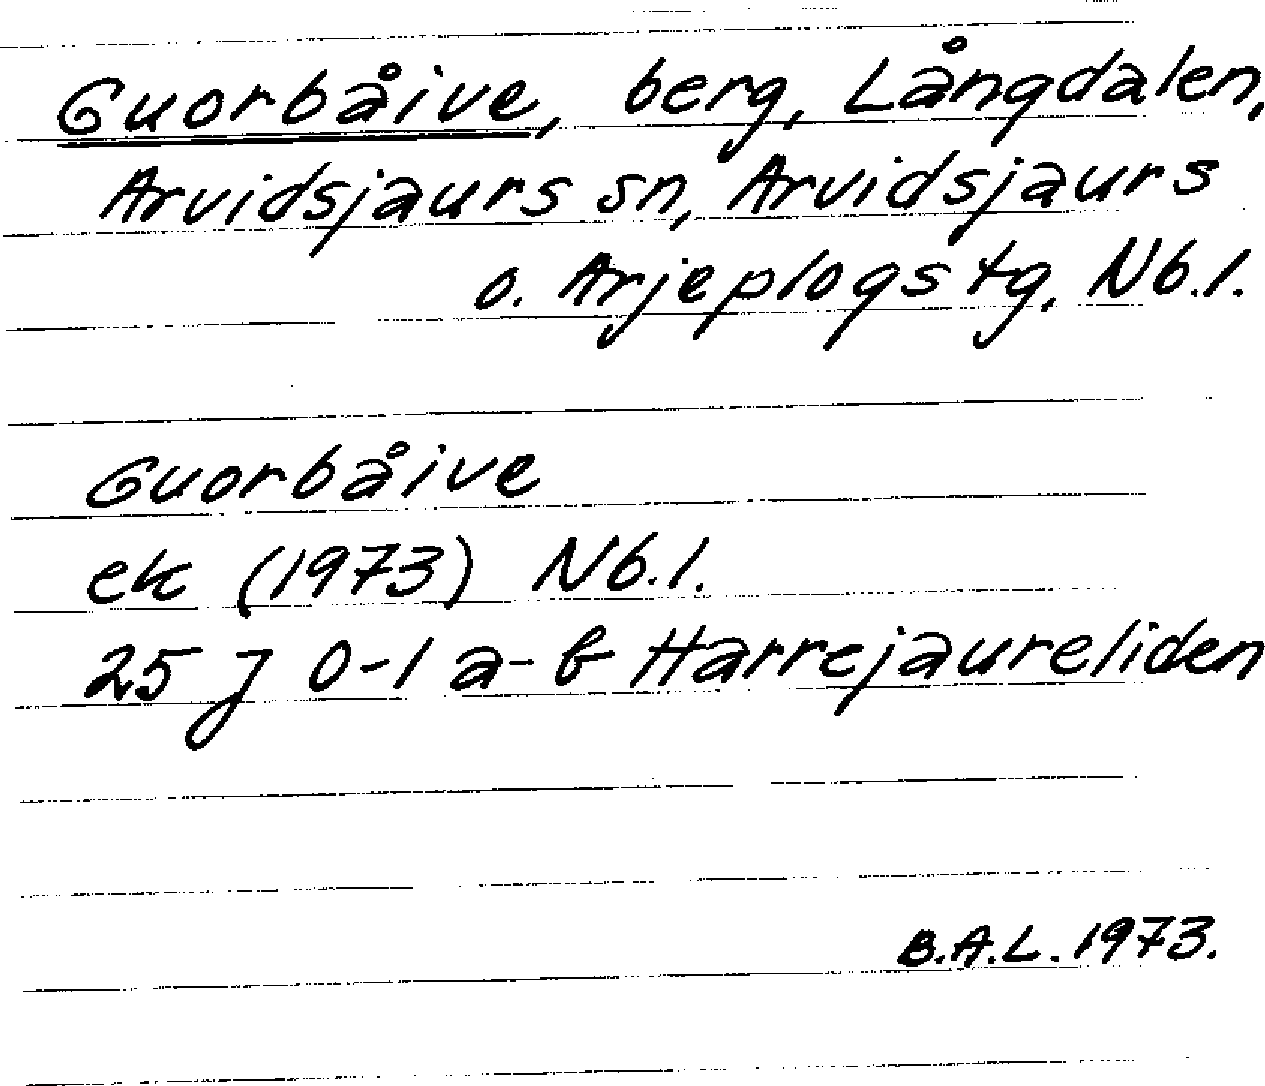 Guorbåive, berg, Långdalen,
Arvidsjaurs sn, Arvidsjaurs
o. Arjeplogs tg, Nb.l.
Guorbåive
ek (1973) Nb.l.
25 J 0-1 a-b Harrejaureliden
B.A.L. 1973.